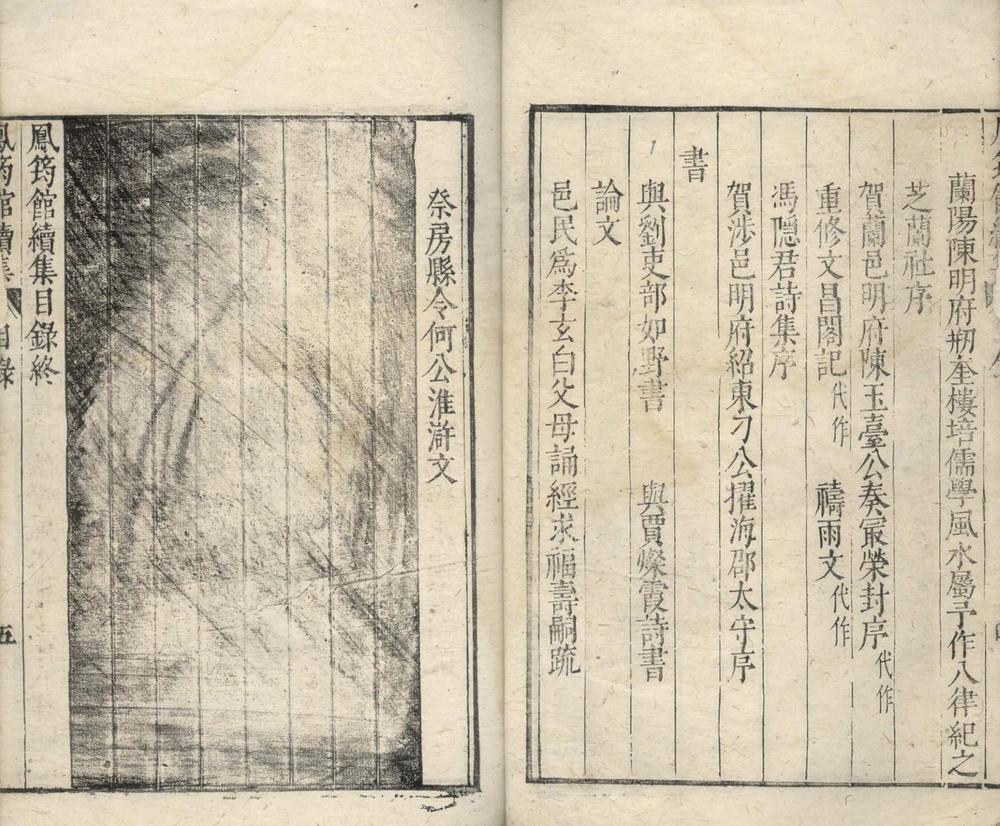 蘭陽陳明府剏奎樓培儒學風水屬予作八律紀之
芝蘭社序
賀蘭邑明府陳玉臺公奏最榮封序代作
重修文昌閣記代作 禱雨文代作
馮隱君詩集序
賀涉邑明府紹東刁公擢海郡太守序
書
與劉吏部如野書 與賈燦霞詩書
論文
邑民為李玄白父母誦經求福壽嗣疏
祭房縣令何公淮滸文
鳳筠館續集目錄終
鳳筠館續集 目錄 五